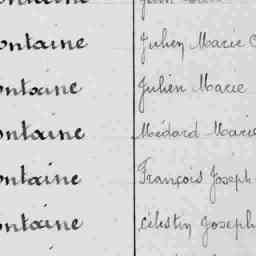 ontaine Julien Marie
ontaine Julien Marie
ontaine Médard Marie
ontaine François Joseph
ontaine Célestin Joseph